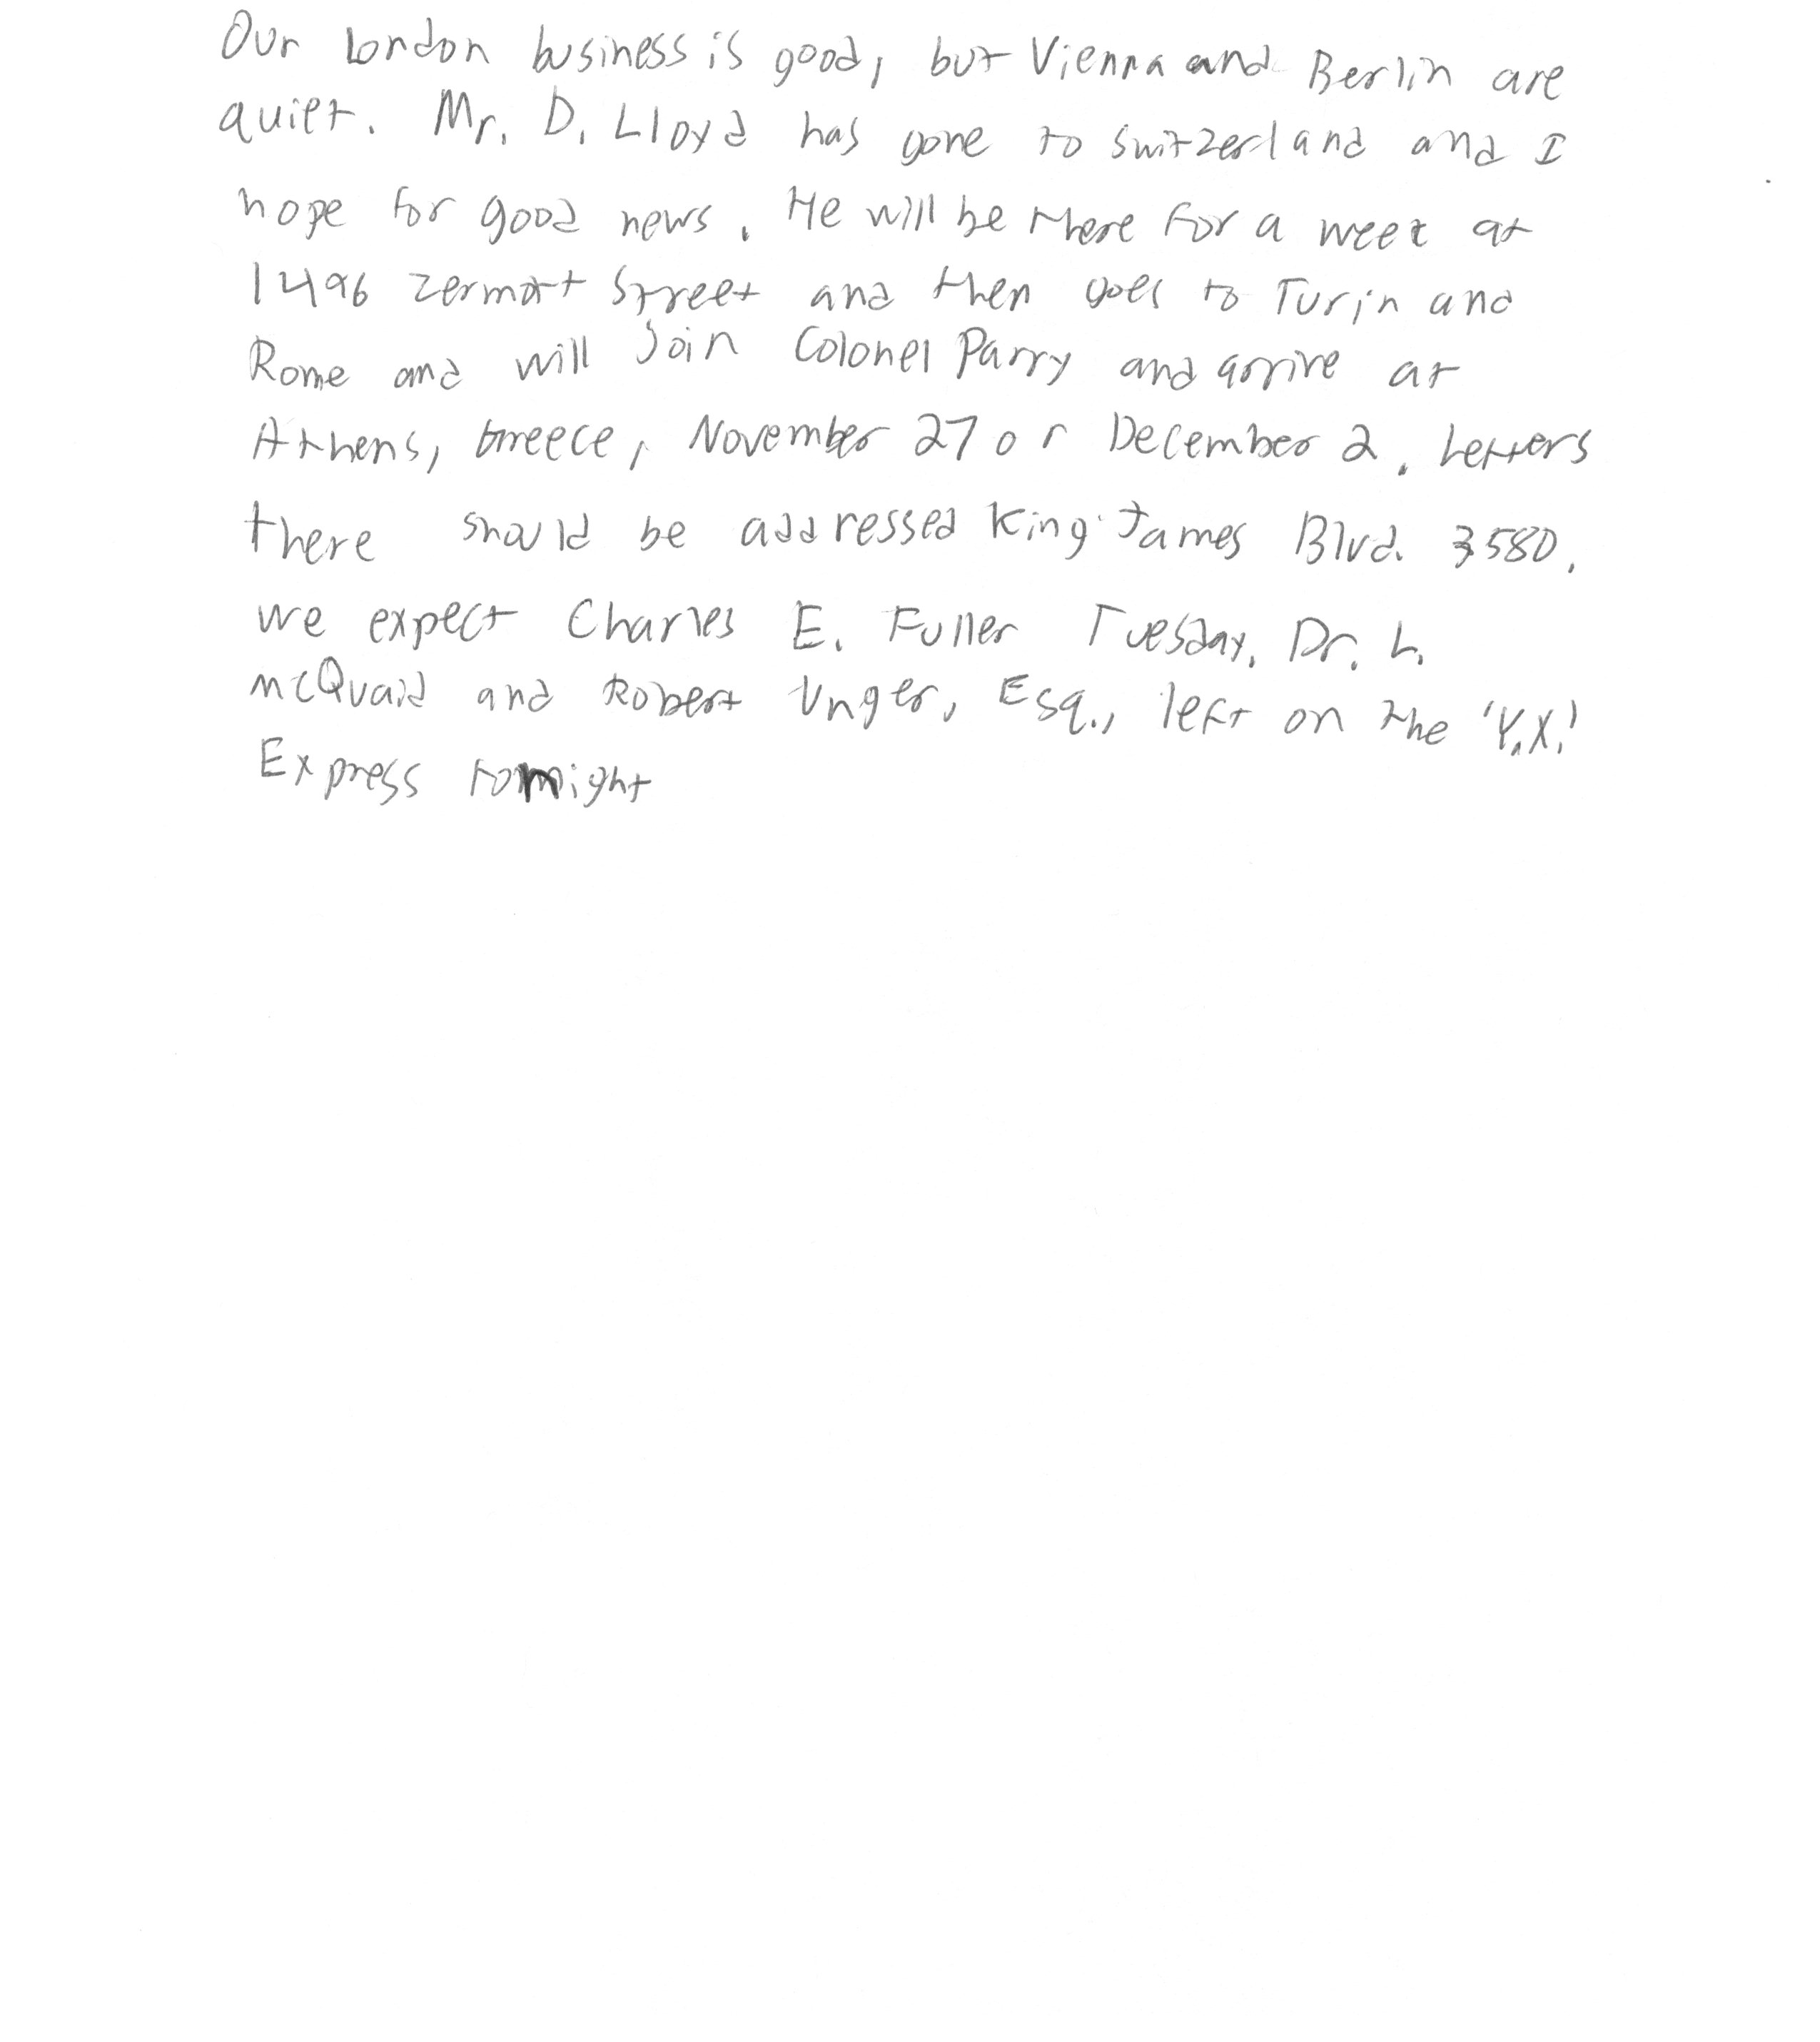 Our London business is good, but Vienna and Berlin are
quiet. Mr. D. Lloyd has gone to Switzerland and I
hope for good news. He will be there for a week at
1496 Zermott Street and then goes to Turin and
Rome and will Join Colonel Parry and arrive at
Athens, Greece, November 27 or December 2. Letters
there should be addressed King James Blvd. 3580.
We expect Charles E. Fuller Tuesday. Dr. L.
McQuaid and Robert Unger, Esq., left on the 'Y.X.'
Express tonight